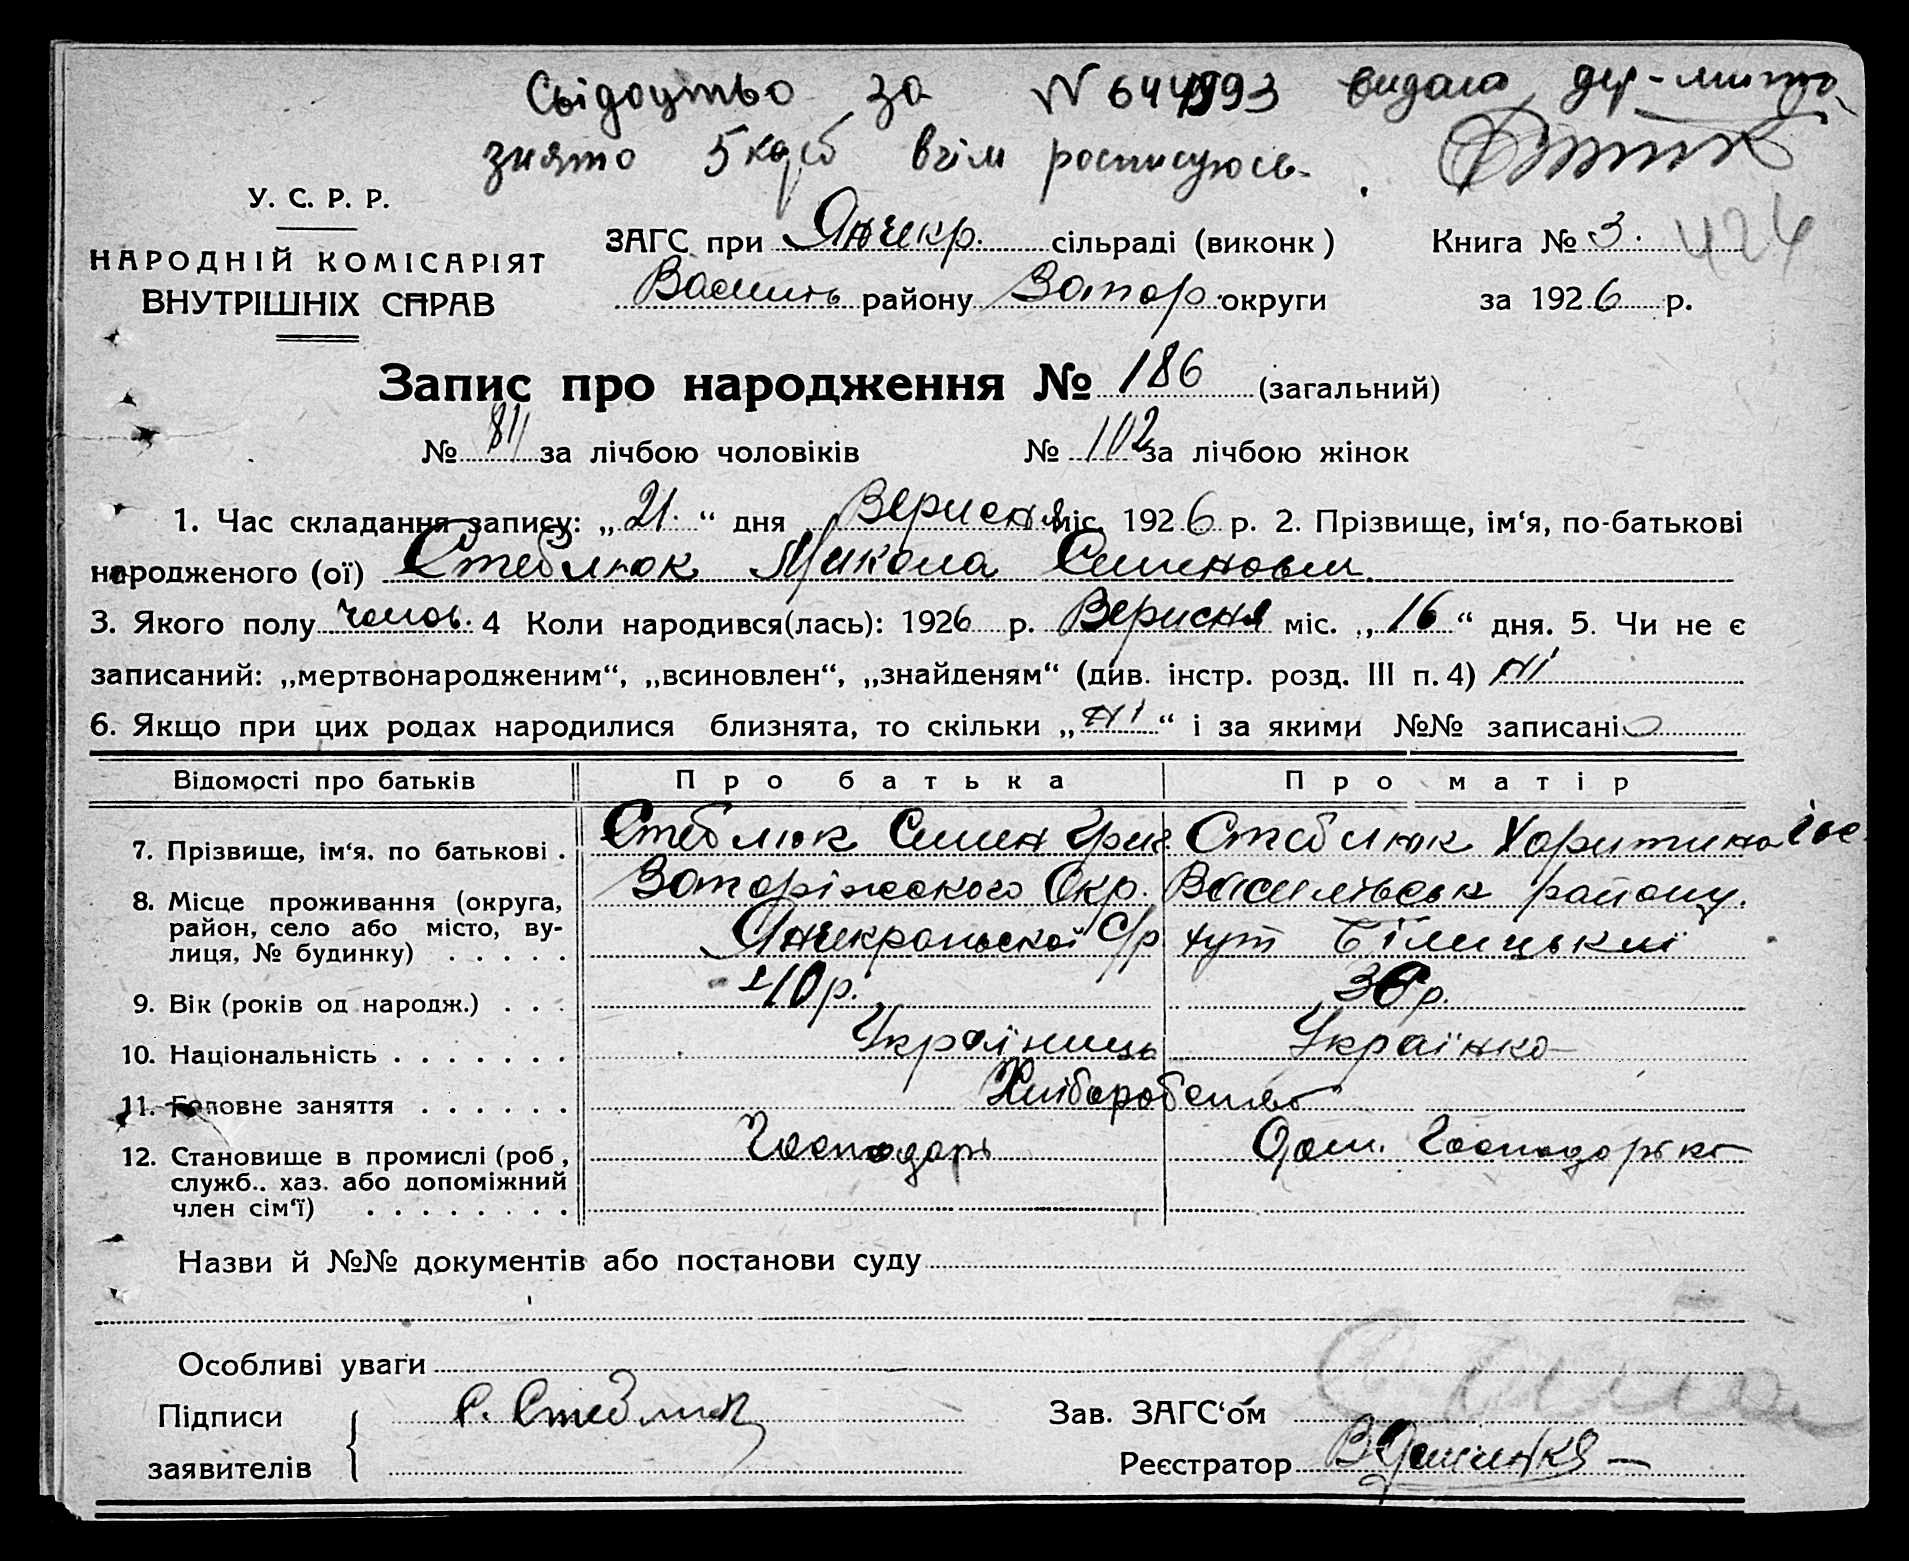 Свідоцтво за № 644993 видало дер-мито
знято 5 карб в чім росписуюсь.
У. С. Р. Р.
НАРОДНІЙ КОМІСАРІЯТ
ВНУТРІШНІХ СПРАВ
ЗАГС при Янчекр. сільраді (виконк)
Василь району Запор. округи
Книга № 3. 424
за 1926 р.
Запис про народження № 186 (загальний)
№ за лічбою чоловіків № 102 за лічбою жінок
1. Час складання запису: „21.“ дня Вересня міс. 1926 р. 2. Прізвище, ім‘я, по-батькові
народженого (ої) Стеблюк Микола Семенович
3. Якого полу чолов. 4 Коли народився(лась): 1926 р. Вересня міс. „16“ дня. 5. Чи не є
записаний: „мертвонародженим“, „всиновлен“, „знайденям“ (див. інстр. розд. III п. 4) ні
6. Якщо при цих родах народилися близнята, то скільки „ні“ і за якими №№ записані
Відомості про батьків Про батька Про матір
7. Прізвище, ім‘я, по батькові . Стеблюк Семен Григ Стеблюк Харитина
8. Місце проживання (округа,
район, село або місто, ву-
лиця, № будинку) . . . . .
Запоріжського Окр. Васильвськ району.
Янчекракськой С/р хут Білицький
9. Вік (років од народж.) . . . 40 р. 36 р.
10. Національність . . . . . . . Українець Українка
11. Головне заняття . . . . . . Хліборобство
12. Становище в промислі (роб,
служб.. хаз. або допоміжний
член сім‘ї) . . . . . . . .
Господарь Дом. Господарька
Назви й №№ документів або постанови суду
Особливі уваги
Підписи
заявителів
С. Стеблюк
Зав. ЗАГС‘ом
Реєстратор